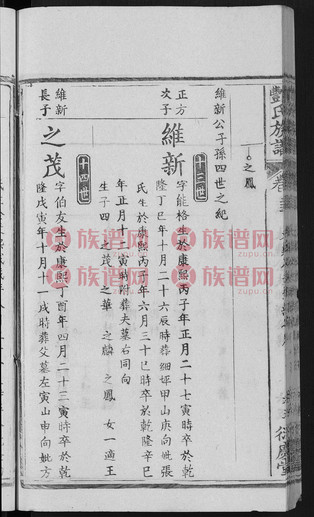 氏族譜
卷
○之鳳
維新公子孫四世之紀
十三世
正方
次子
維新
字能格生於康熙丙子年正月二十七寅時卒於乾
隆丁巳年十月二十六辰時葬細坪甲山庚向妣張
氏生於康熙丙子年六月三十巳時卒於乾隆辛巳
年正月十二寅時附葬夫墓右同向
生子四 之茂 之華 之麟 之鳳 女一適王
十四世
維新
長子
之茂
字伯友生於康熙丁酉年四月二十三寅時卒於乾
隆戊寅年十月十一戌時葬父墓左寅山申向妣方
族谱网
zupu.cn